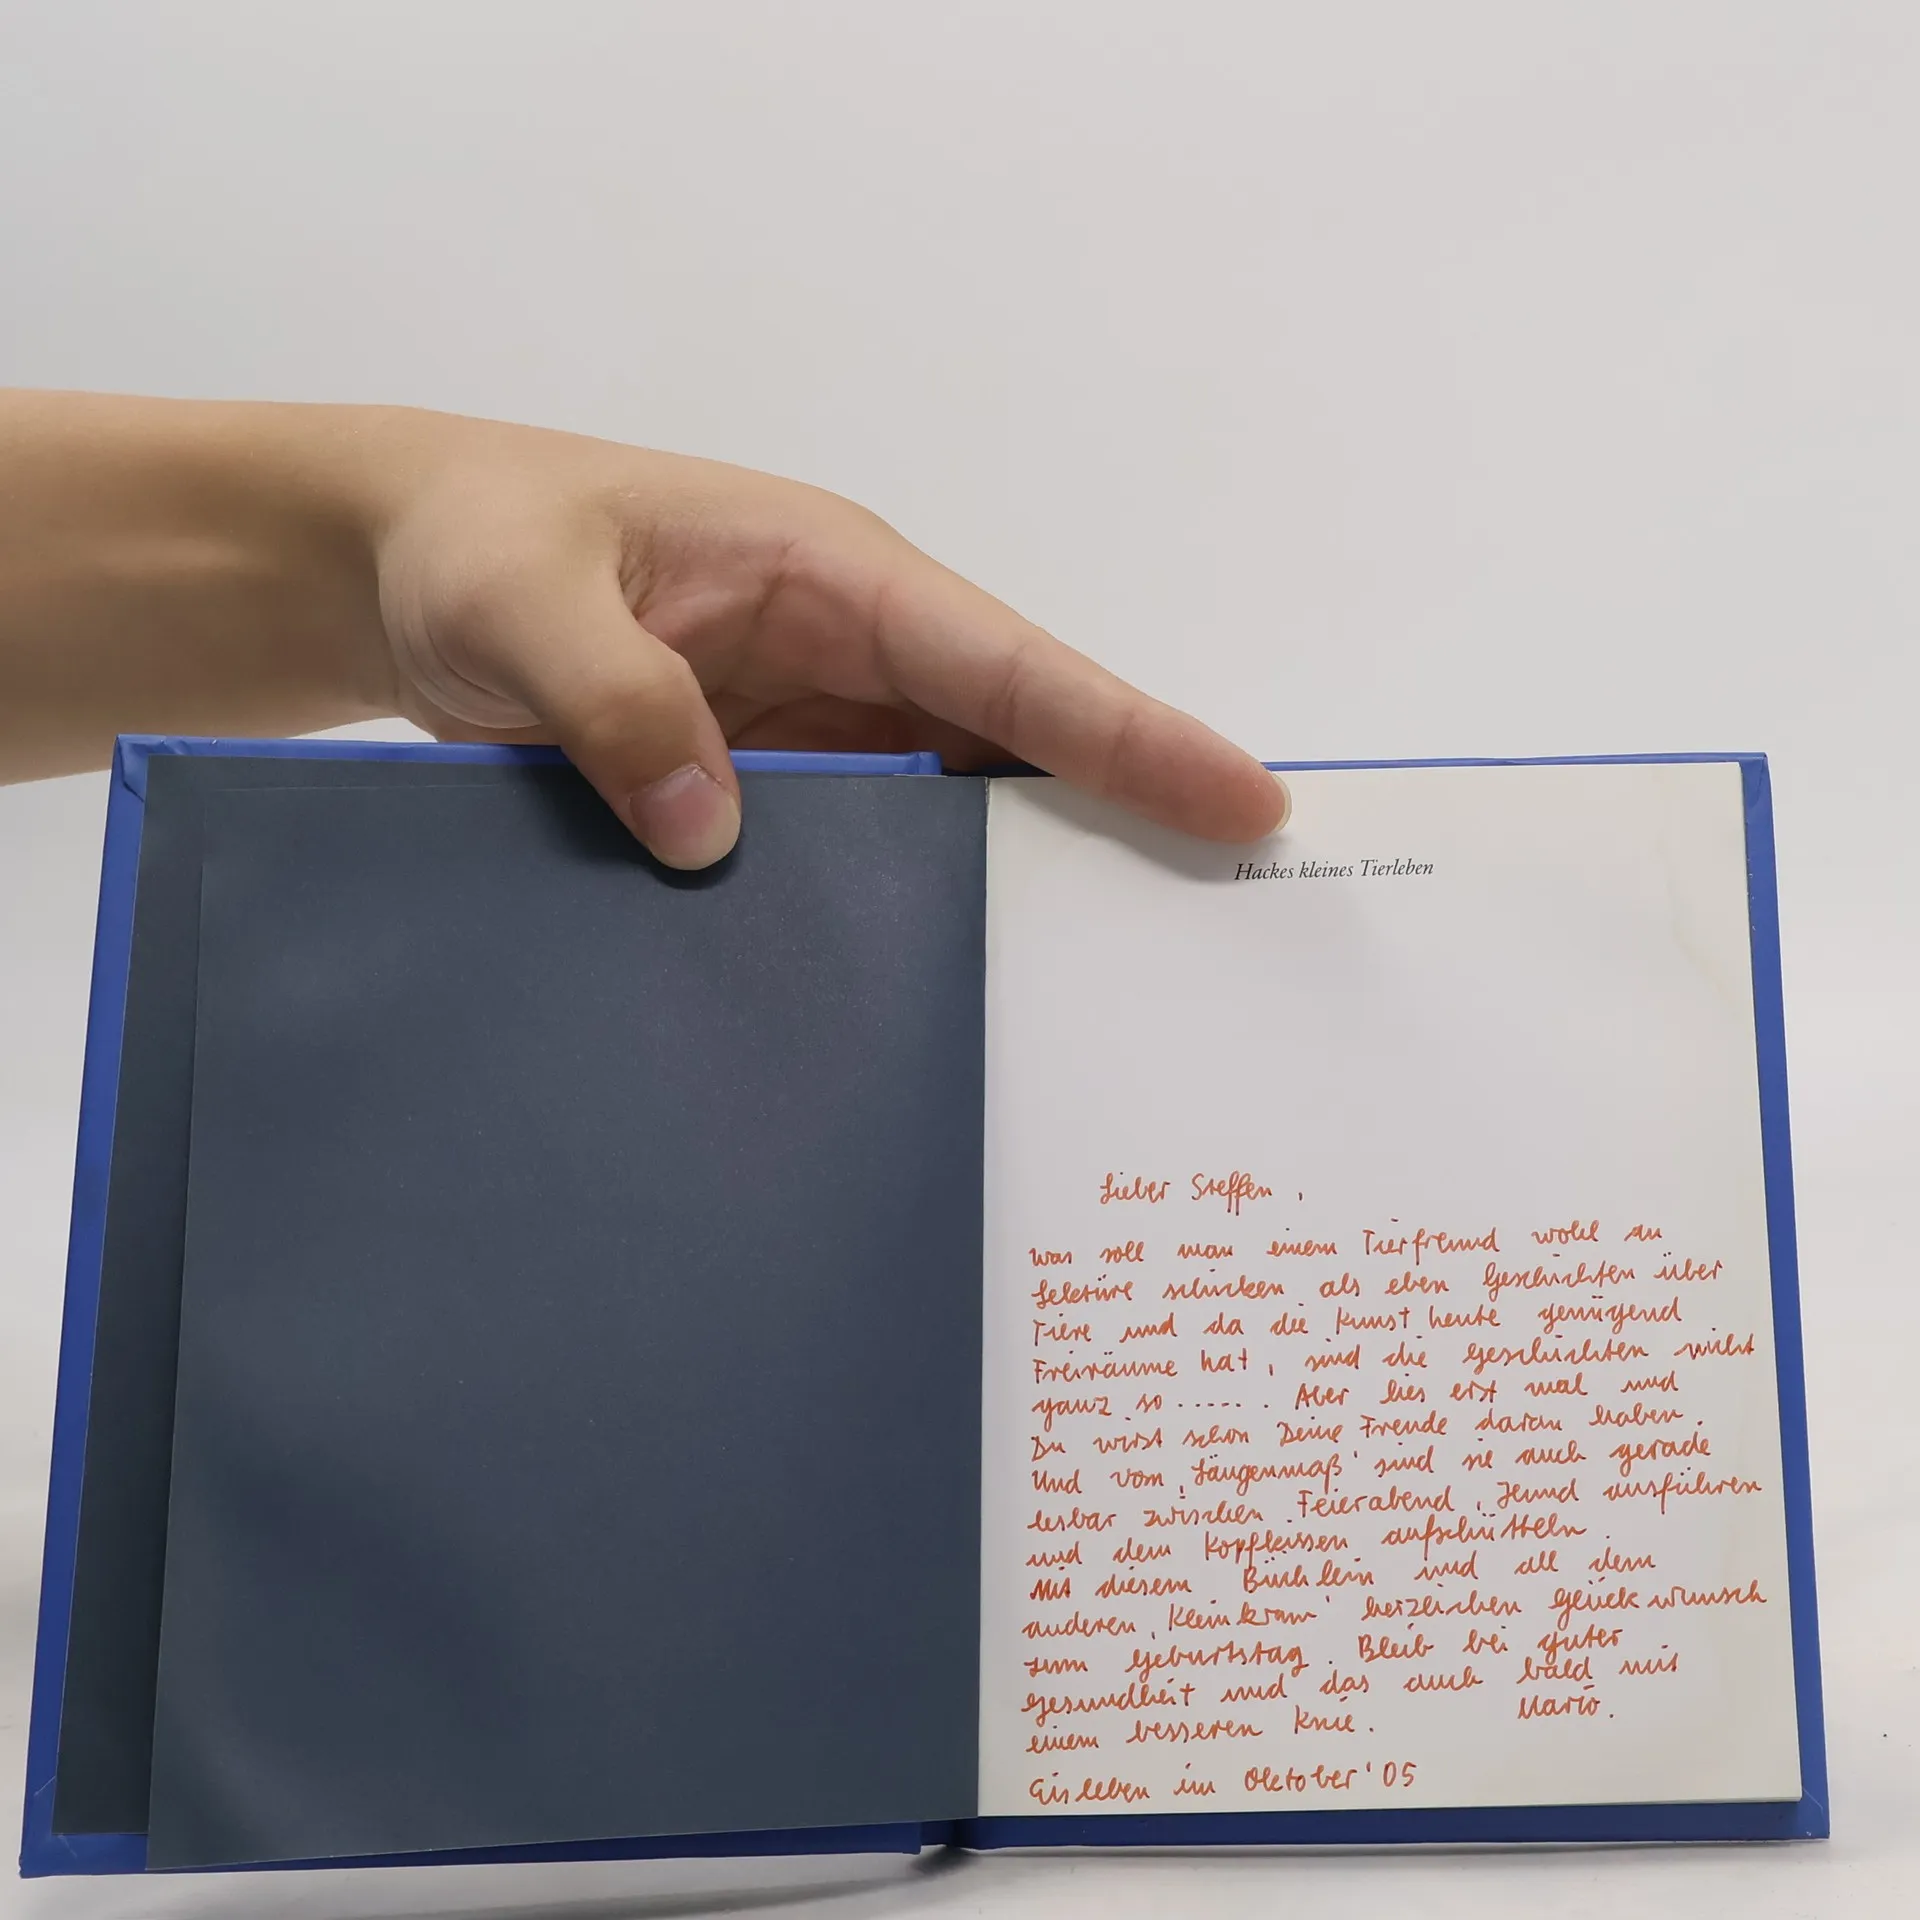 Hackes kleines Tierleben
Lieber Steffen,
was soll man einem Tierfreund wohl an
Lektüre schicken als eben Geschichten über
Tiere und da die Kunst heute genügend
Freiräume hat, sind die Geschichten nicht
ganz so ...... Aber lies erst mal und
Du wirst schon Deine Freude daran haben.
Und vom ‚Längenmaß' sind sie auch gerade
lesbar zwischen Feierabend, Hund ausführen
und dem Kopfkissen aufschütteln.
Mit diesem Büchlein und all dem
anderen ‚Kleinkram' herzlichen Glückwunsch
zum Geburtstag. Bleib bei guter
Gesundheit und das auch bald mit
einem besseren Knie. Mario.
Eisleben im Oktober '05